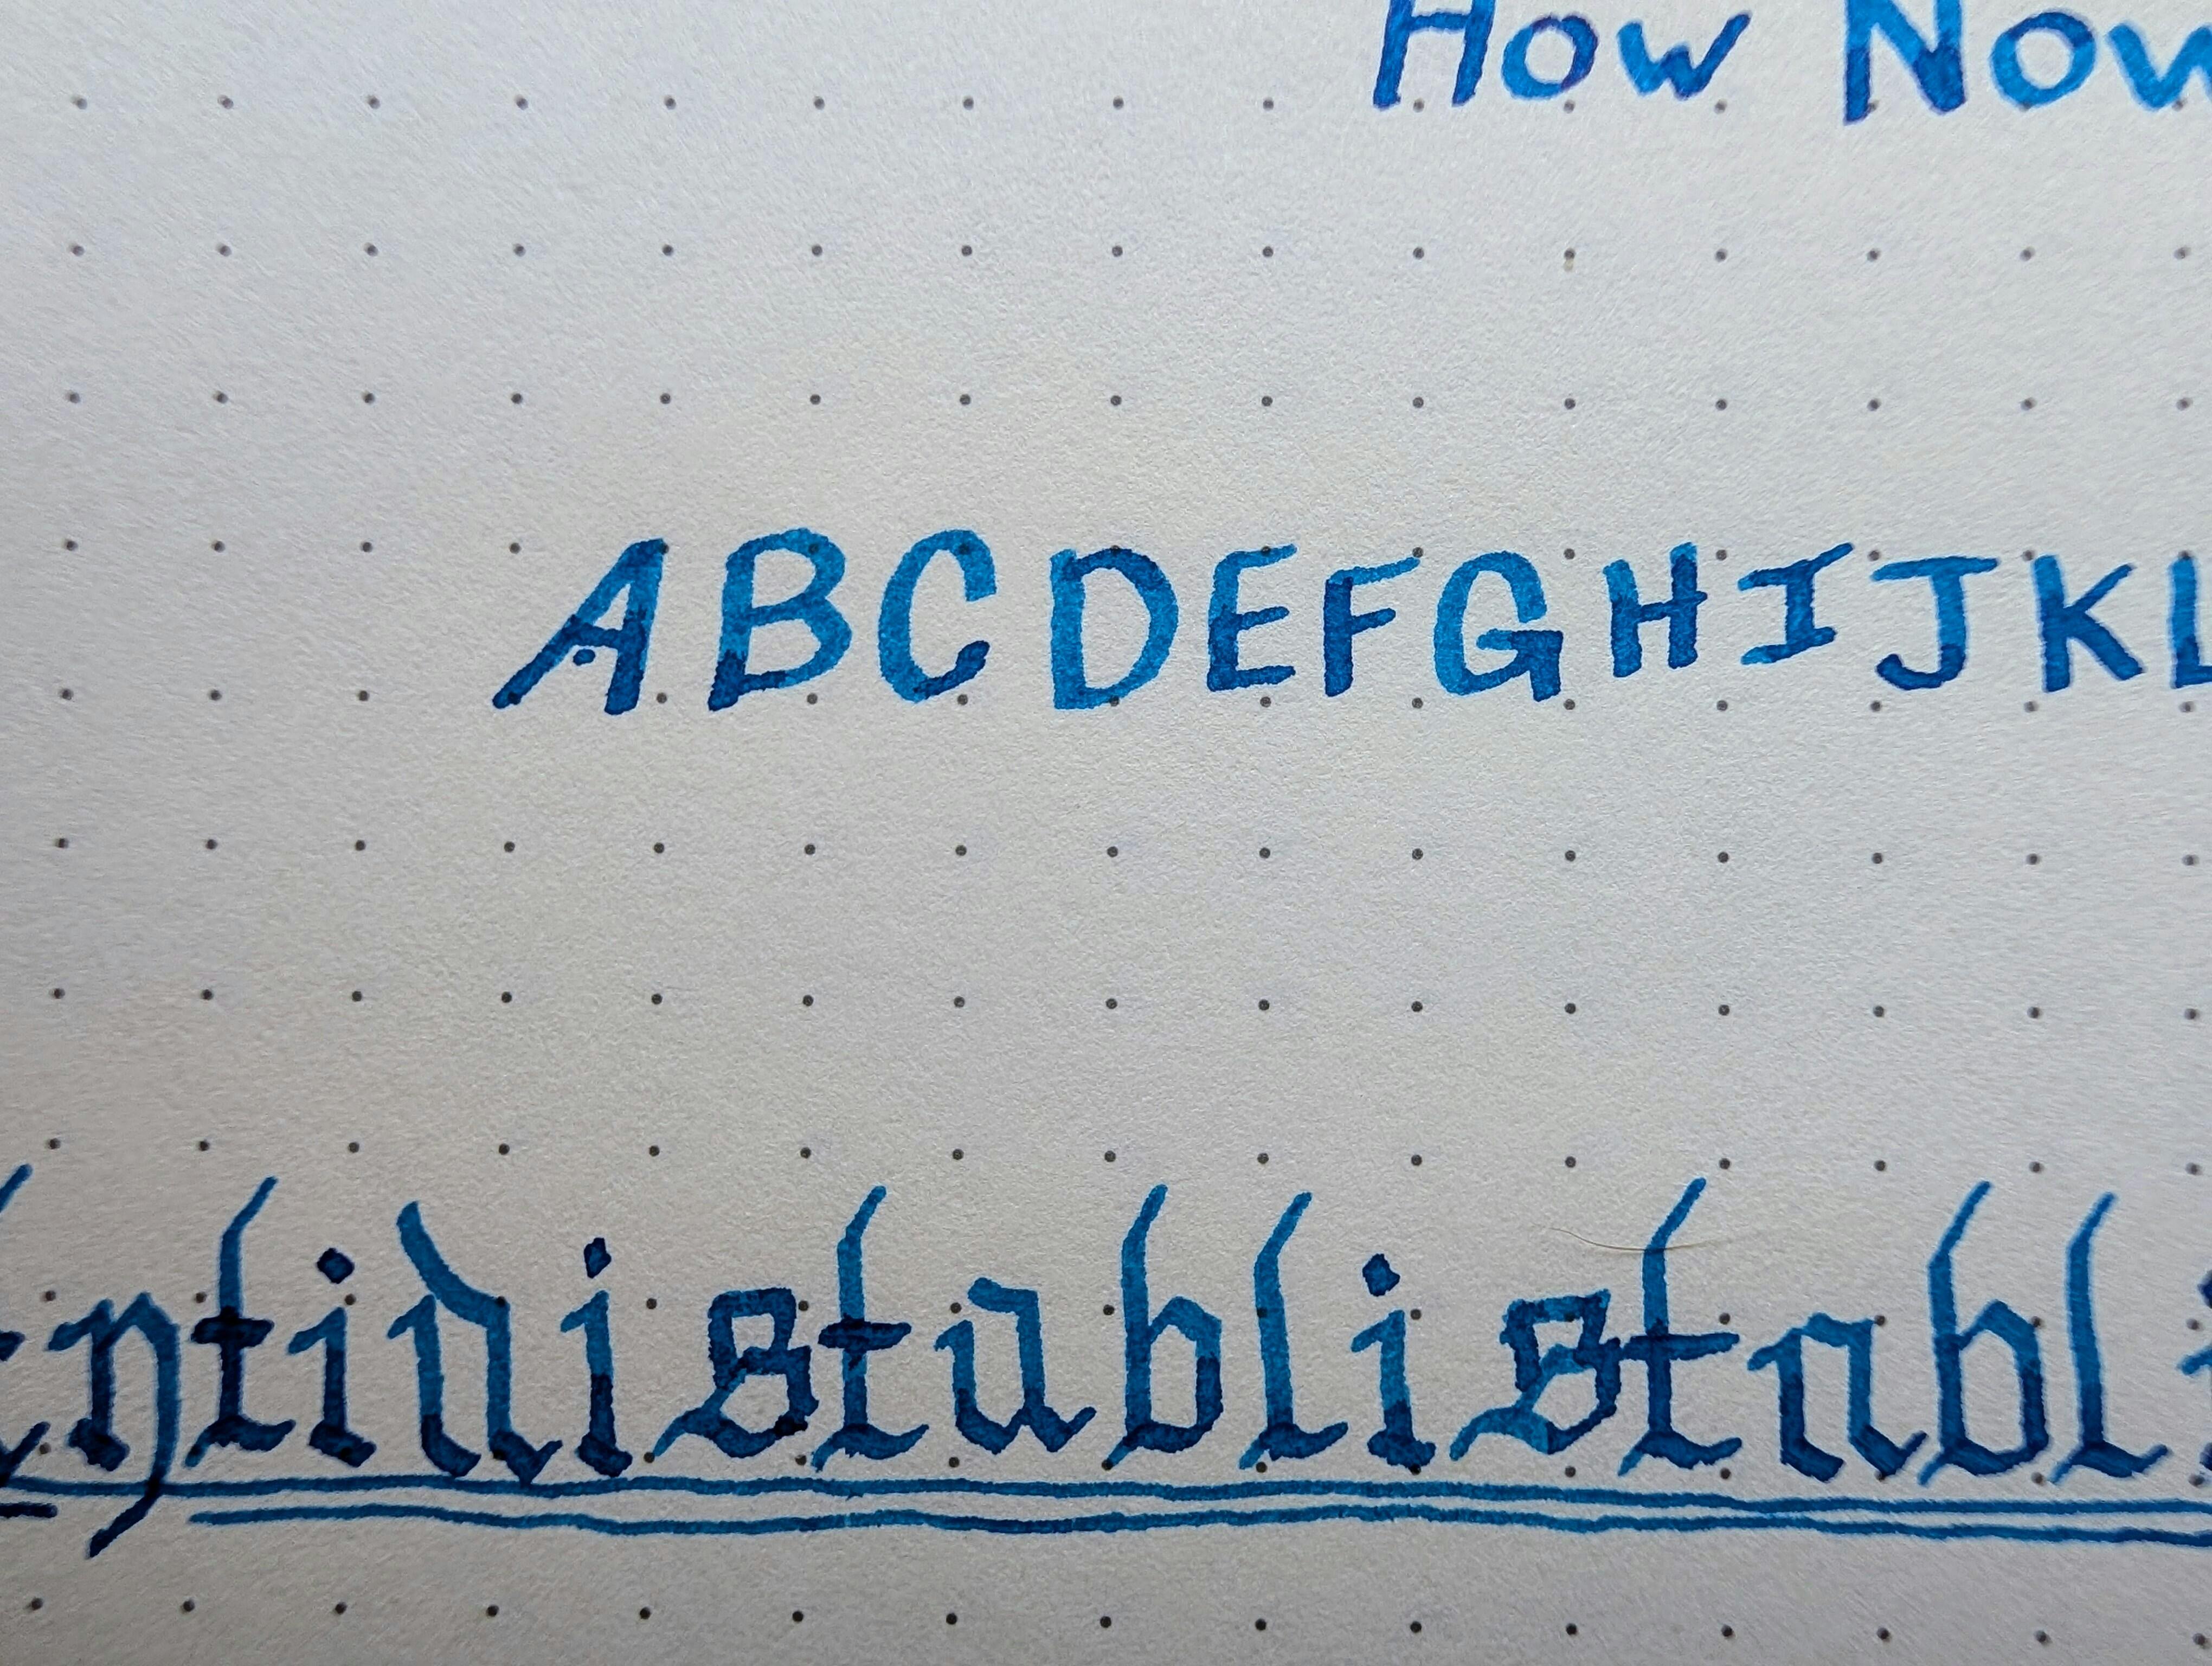 How Now
ABCDEFGHIJKL
ntidistablistabli